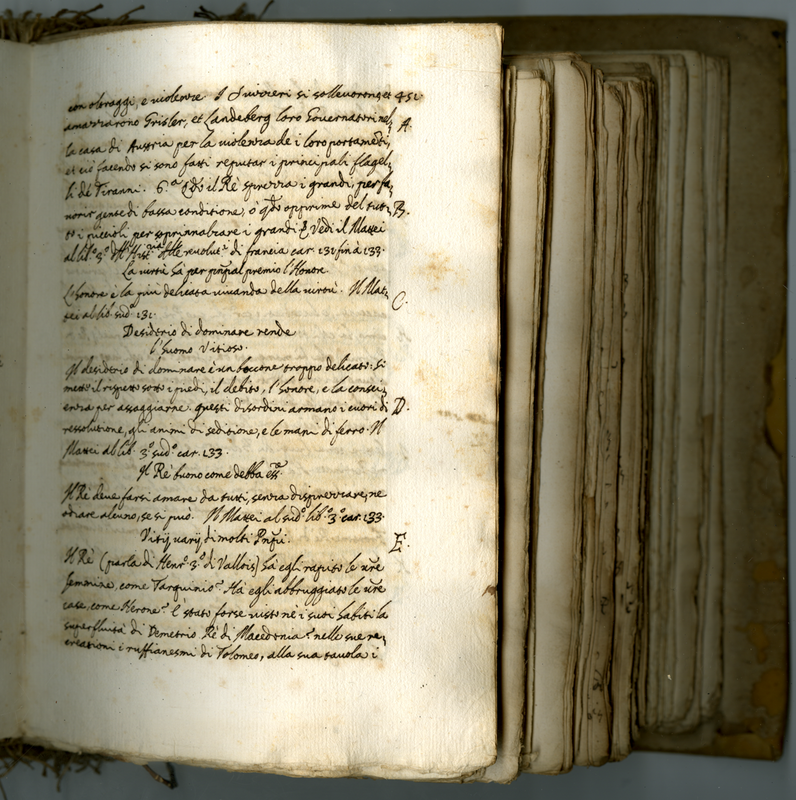 con oltraggi, e violenze I Suizzeri si sollevorono, et 451.
amazzarono Grisler, et Landeberg loro Governatori nel, A.
la casa di Austria per la violenza de i loro portamẽti,
et ciò facendo si sono fatti reputar i principali flagel,
li de Tiranni. 6.ª il Rè sprezza i grandi, per fa,
vorir gente di bassa condizione, ò opprime del tut, B.
to i piccioli per soprinnalzare i grandi Vedi il Mattei
al lib.º 3.º dell' Hist. delle revolut.ⁱ di francia car. 131 fin à 133.
La virtù hà per prñpal premio l'Honore.
L'honore è la più delicata vivanda della virtù. Il Mat, C.
tei al lib. sud.º 131.
Desiderio di dominare rende
l'huomo vitioso.
Il desiderio di dominare è un boccone troppo delicato. Si
mette il rispetto sotto i piedi, il debito, l'honore, e la consci,
enza per assaggiarne. questi disordini armano i cuori di D.
ressolutione, gli animi di seditione, e le mani di ferro. Il
Mattei al lib. 3.º sud.º car. 133.
Il Rè buono come debba ess.ᵉ
Il Rè deve farsi amare da tutti, senza disprezzare, ne
odiare alcuno, se si può. Il Mattei al sud.º lib.º 3.º car. 133.
Vitij varij di molti Prñpi. E.
Il Rè (parla di Henr.º 3.º di Vallois) hà egli rapito le vr̃e
femmine, come Tarquinio? Hà egli abbruggiato le vr̃e
case, come Nerone? è stato forse visto ne i suoi habiti la
superfluità di Demetrio Rè di Macedonia? nelle sue re,
creationi i ruffianesmi di Tolomeo, alla sua tavola i